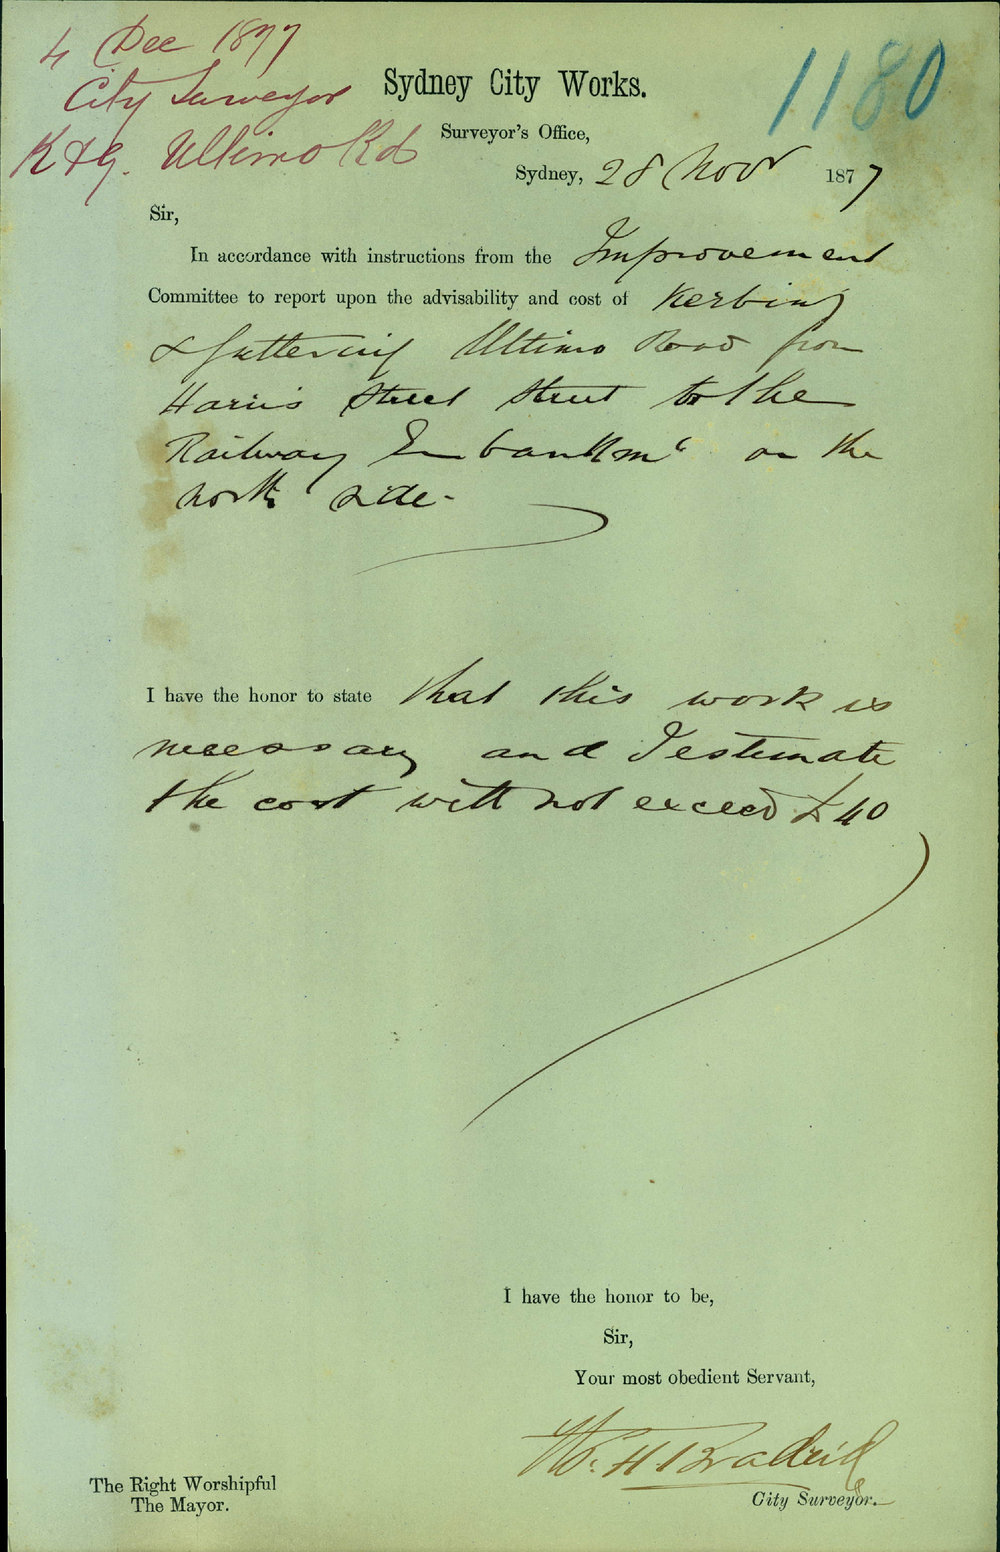 4 Dec 1877
City Surveyor
K & G. Ultimo Rd
1180
Sydney City Works.
Surveyor's Office,
Sydney, 28 Novr 1877
Sir,
In accordance with instructions from the Improvement
Committee to report upon the advisability and cost of Kerbing
& guttering Ultimo Road from
Harris Street Street to the
Railway Embankmt on the
north side -
I have the honor to state that this work is
necessary and I estimate
the cost will not exceed £40
I have the honor to be,
Sir,
Your most obedient Servant,
City Surveyor.
The Right Worshipful
The Mayor.